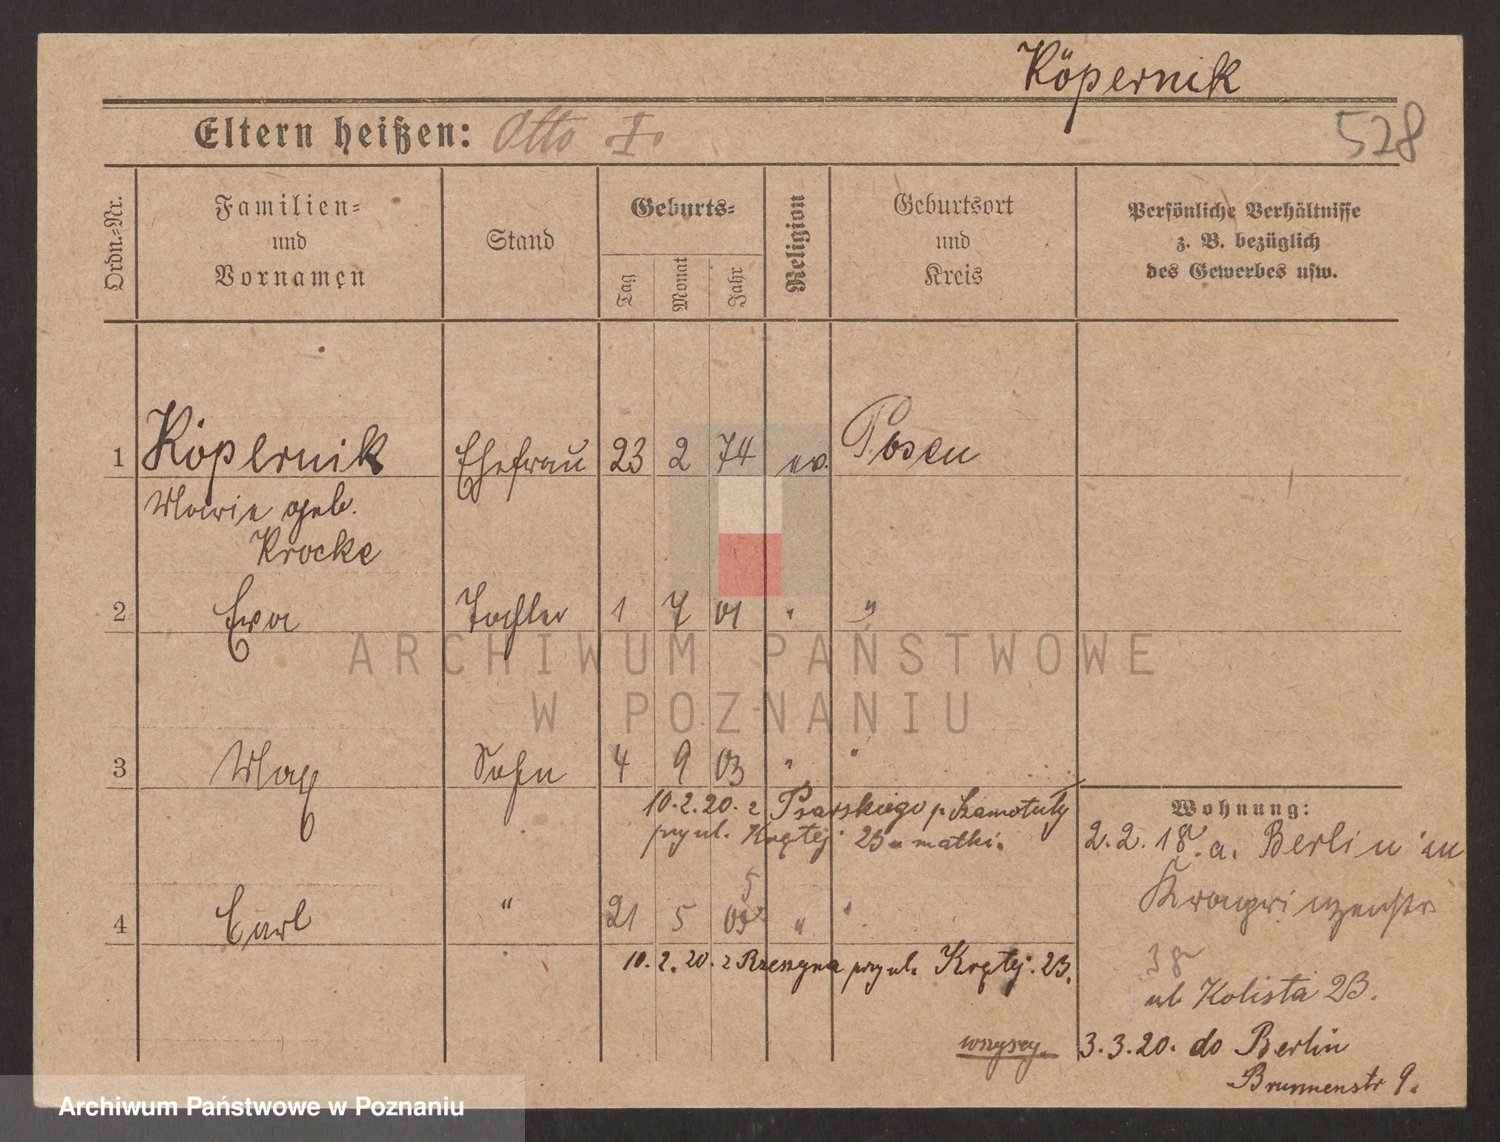 Köpernik
Eltern heißen: Otto I.
528
Ordn.-Nr.
Familien-
und
Vornamen
Stand
Geburts-
Tag
Monat
Jahr
Religion
Geburtsort
und
Kreis
Persönliche Verhältnisse
z. B. bezüglich
des Gewerbes usw.
1 Köpernik Ehefrau 23 2 74 ev. Posen
Marie geb.
Krocke
2 Ewa Tochter 1 7 01 " "
3 Max Sohn 4 9 03 " "
10.2.20. z Psarskiego p. Szamotuły
przy ul. Krętej 23 u matki.
Wohnung:
2.2.18. a. Berlin in
Kronprinzenstr
38
ul Kolista 23.
5
4 Carl " 21 5 05 " "
10.2.20. z Rzeszyna przy ul. Krętej. 23.
wszyscy. 3.3.20. do Berlin
Brunnenstr 9.
ARCHIWUM PAŃSTWOWE
W POZNANIU
Archiwum Państwowe w Poznaniu